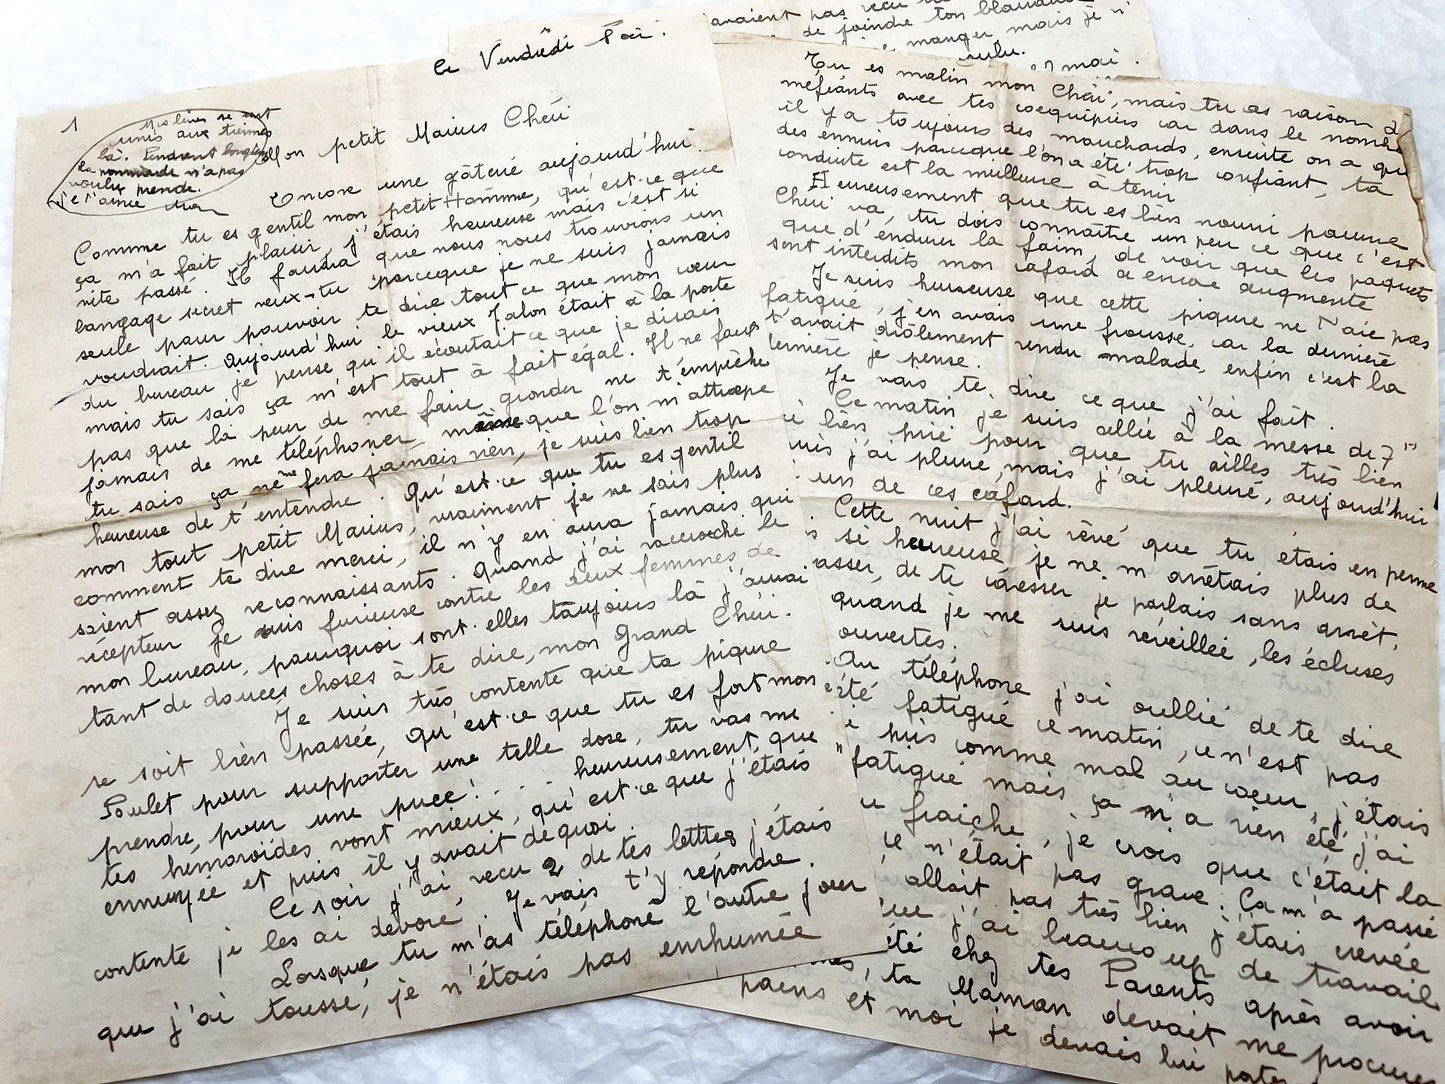 le Vendredi Soir.
1
Mes livres se sont
unis aux tiennes
là. Pendant longtemps
la commande n'a pas
voulu prendre.
Je t'aime
Mon petit Marius Chéri
Encore une gâterie aujourd'hui.
Comme tu es gentil mon petit Homme, qu'est-ce que
ça m'a fait plaisir, j'étais heureuse mais c'est si
vite passé. Il faudra que nous nous trouvions un
langage secret veux-tu parceque je ne suis jamais
seule pour pouvoir te dire tout ce que mon cœur
voudrait. aujourd'hui le vieux Jalon était à la porte
du bureau je pense qu'il écoutait ce que je disais
mais tu sais ça m'est tout à fait égal. Il ne faut
pas que la peur de me faire gronder ne t'empêche
jamais de me téléphoner, même que l'on m'attrape
tu sais ça ne me fera jamais rien, je suis bien trop
heureuse de t'entendre. Qu'est-ce que tu es gentil
mon tout petit Marius, vraiment je ne sais plus
comment te dire merci, il n'y en aura jamais qui
soient assez reconnaissants. Quand j'ai raccroché le
récepteur je suis furieuse contre les deux femmes de
mon bureau, pourquoi sont-elles toujours là j'aurai
tant de douces choses à te dire, mon Grand Chéri.
Je suis très contente que ta piqure
se soit bien passée, qu'est-ce que tu es fort mon
Poulet pour supporter une telle dose, tu vas me
prendre, pour une puce!... heureusement, que
tes hémoroïdes vont mieux, qu'est-ce que j'étais
ennuyée et puis il y avait de quoi.
Ce soir j'ai recu 2 de tes lettres j'étais
contente je les ai dévoré. Je vais t'y répondre.
Lorsque tu m'as téléphoné l'autre jour
que j'ai toussé, je n'étais pas enrhumée
avaient pas recu
de joindre ton
manger, mais je n'
voulu.
moi.
Tu es malin mon Chéri, mais tu as raison
méfiants avec tes coequipiers car dans le nombre
il y a toujours des mouchards, ensuite on a que
des ennuis parceque l'on a été trop confiant, ta
conduite est la meilleure à tenir
Heureusement que tu es bien nourri pauvre
Chéri va, tu dois connaître un peu ce que c'est
que d'endurer la faim, de voir que les paquets
sont interdits mon cafard a encore augmenté
Je suis heureuse que cette piqure ne t'aie pas
fatigué, j'en avais une frousse, car la dernière
t'avait drôlement rendu malade, enfin c'est la
dernière je pense.
Je vais te dire ce que j'ai fait.
Ce matin je suis allée à la messe de 7h
bien prié pour que tu ailles très bien
puis j'ai pleuré, mais j'ai pleuré, aujourd'hui
un de ces cafard.
Cette nuit j'ai rêvé que tu étais en perme
si heureuse, je ne m'arrêtais plus de
de te caresser je parlais sans arrêt,
quand je me suis réveillée, les écluses
ouvertes.
Au téléphone j'ai oublié de te dire
été fatigué ce matin, ce n'est pas
pris comme mal au cœur, j'étais
fatigué mais ça n'a rien été, j'ai
fraîche, je crois que c'était la
n'était pas grave. Ca m'a passé
allait pas très bien j'étais
que j'ai beaucoup de travail
été chez tes Parents après avoir
ta Maman devait me procurer
pains et moi je devais lui